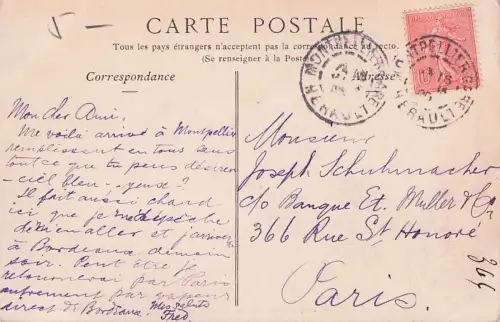 5
CARTE POSTALE
Tous les pays étrangers n'acceptent pas la correspondance au recto.
(Se renseigner à la Poste)
Correspondance
Adresse
MONTPELLIER GARE
HERAULT
MONTPELLIER GARE
HERAULT
Mon cher Ami,
Me voilà arrivé à Montpellier
remplissent en tous sens
tout ce que tu peux désirer
- ciel bleu -
Il fait aussi chaud
ici que je
d'en aller et j'arriverai
à Bordeaux demain
soir. Peut être je
retournerai par Paris
autrement par vapeur
direct de Bordeaux. Mes saluts
Fred.
Monsieur
Joseph Schuhmacher
c/o Banque Et. Muller & Co
366 Rue St Honoré
Paris.
366